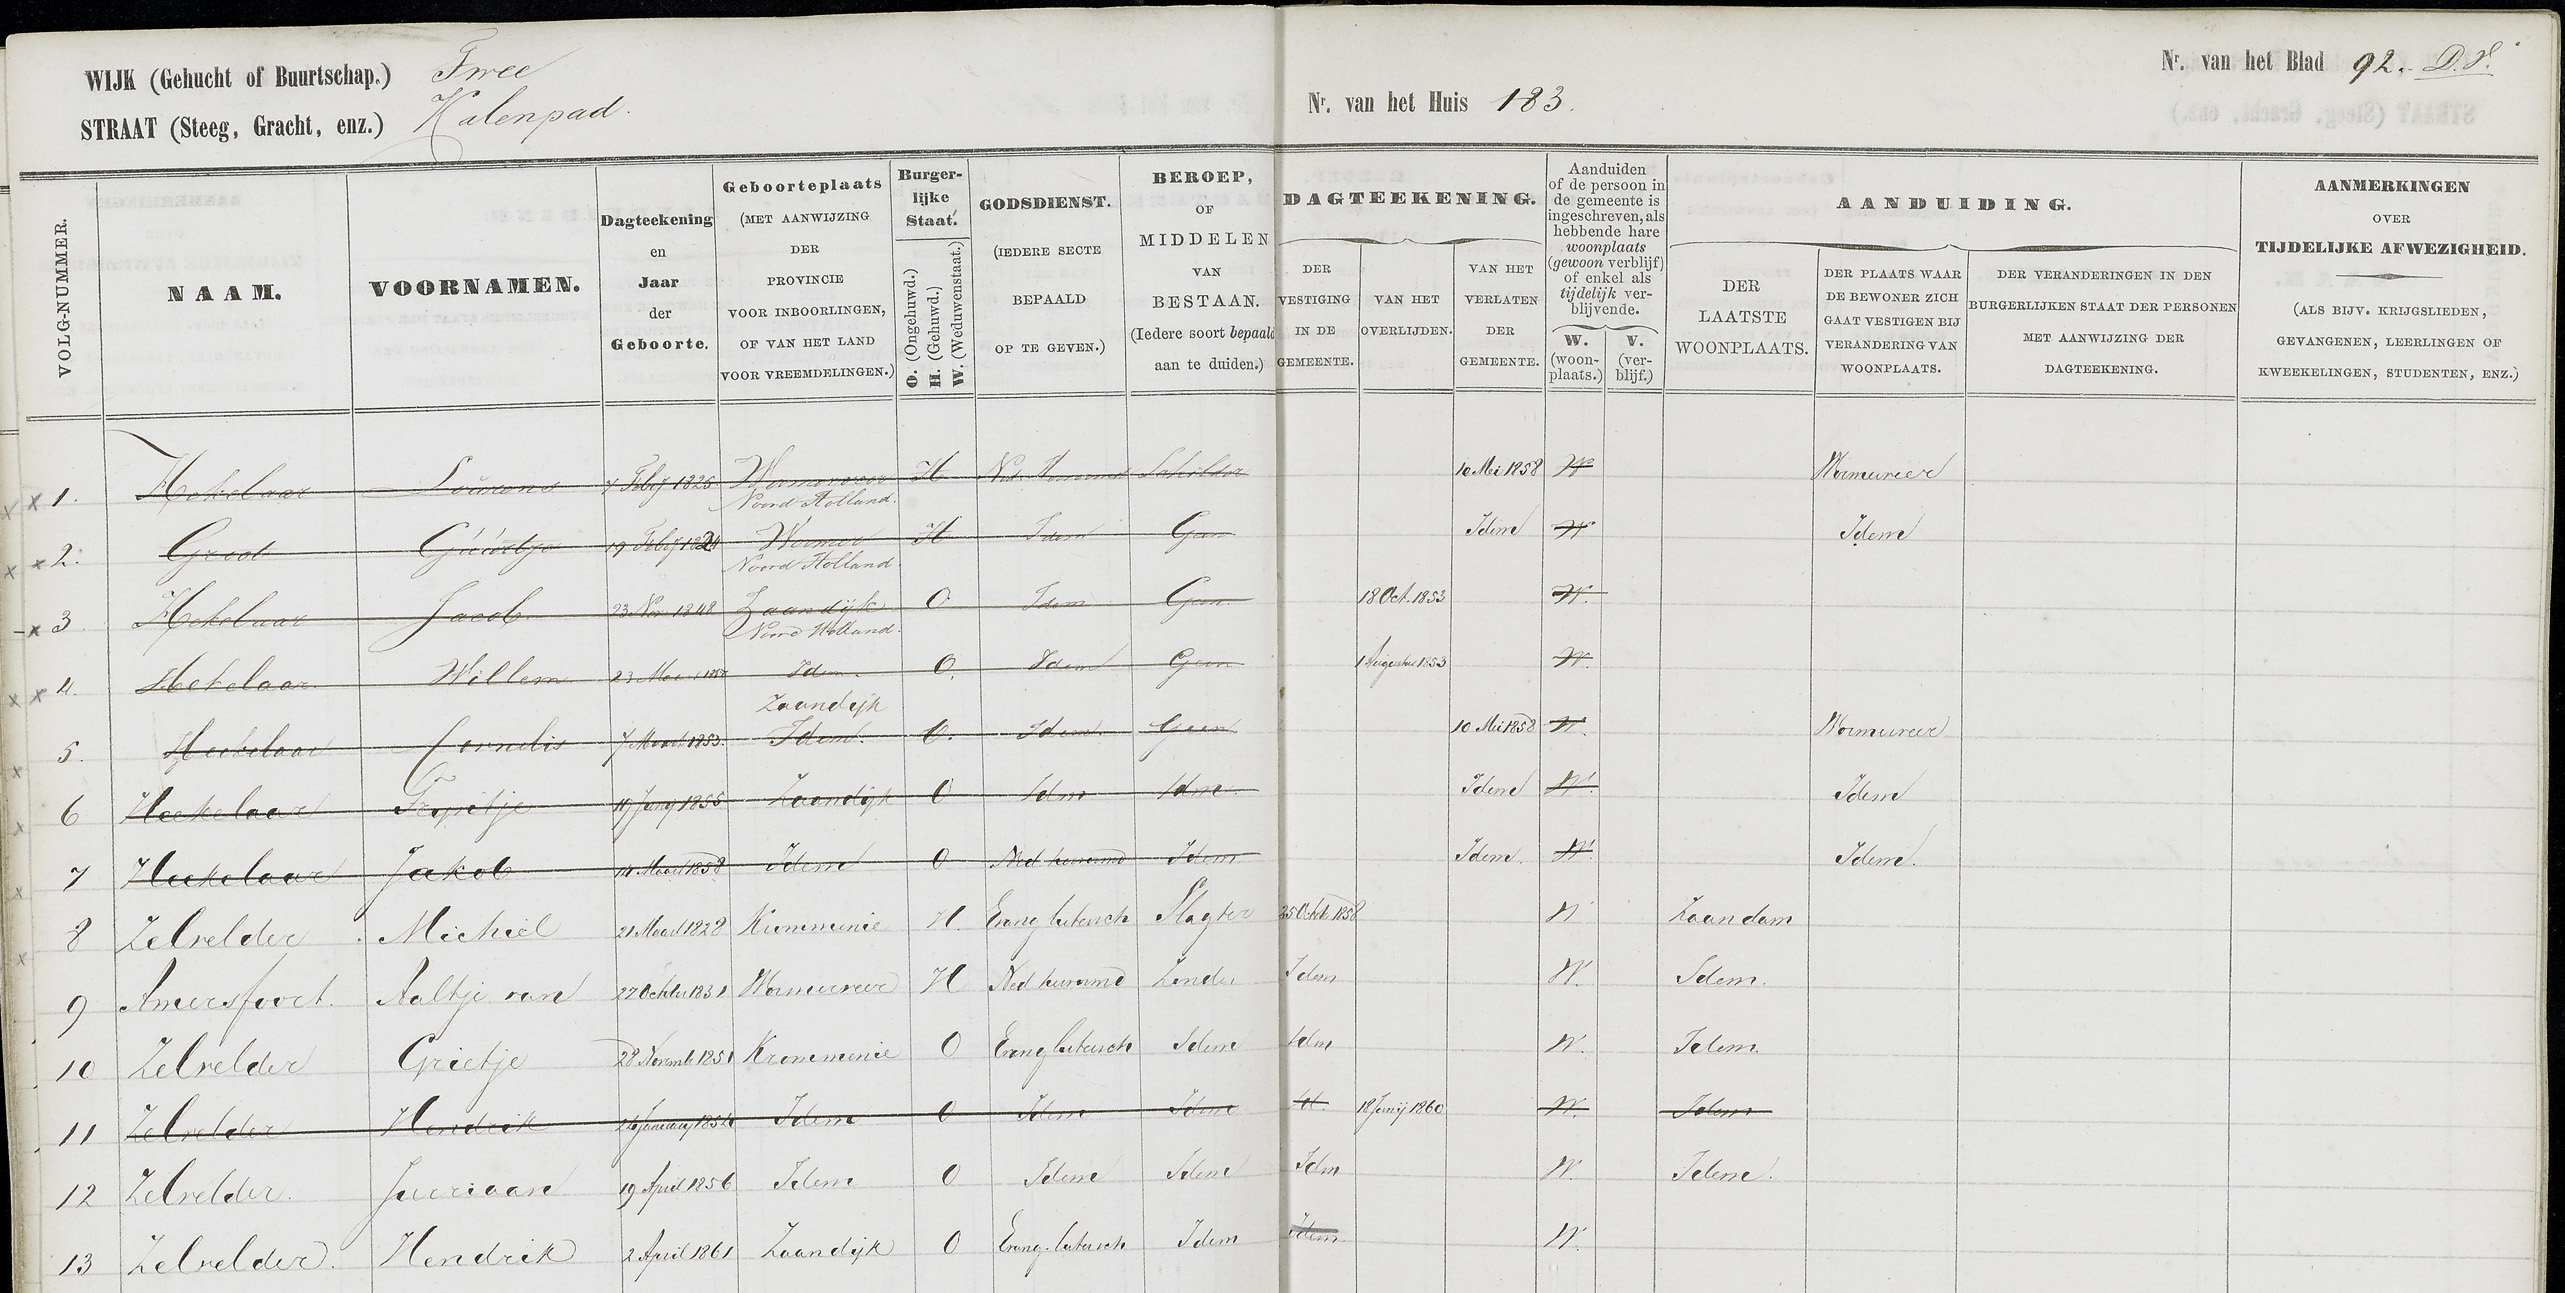 WIJK (Gehucht of Buurtschap.) Twee
STRAAT (Steeg, Gracht, enz.) Kalenpad.
Nr. van het Huis 183.
Nr. van het Blad 92.
VOLG-NUMMER.
NAAM.
VOORNAMEN.
Dagteekening
en
Jaar
der
Geboorte.
Geboorteplaats
(MET AANWIJZING
DER
PROVINCIE
VOOR INBOORLINGEN,
OF VAN HET LAND
VOOR VREEMDELINGEN.)
Burger-
lijke
Staat.
O. (Ongehuwd.)
H. (Gehuwd.)
W. (Weduwenstaat.)
GODSDIENST.
(IEDERE SECTE
BEPAALD
OP TE GEVEN.)
BEROEP,
OF
MIDDELEN
VAN
BESTAAN.
(Iedere soort bepaald
aan te duiden.)
DAGTEEKENING.
DER
VESTIGING
IN DE
GEMEENTE.
VAN HET
OVERLIJDEN.
VAN HET
VERLATEN
DER
GEMEENTE.
Aanduiden
of de persoon in
de gemeente is
ingeschreven, als
hebbende hare
woonplaats
(gewoon verblijf)
of enkel als
tijdelijk ver-
blijvende.
W.
(woon-
plaats.)
V.
(ver-
blijf.)
AANDUIDING.
DER
LAATSTE
WOONPLAATS.
DER PLAATS WAAR
DE BEWONER ZICH
GAAT VESTIGEN BIJ
VERANDERING VAN
WOONPLAATS.
DER VERANDERINGEN IN DEN
BURGERLIJKEN STAAT DER PERSONEN
MET AANWIJZING DER
DAGTEEKENING.
AANMERKINGEN
OVER
TIJDELIJKE AFWEZIGHEID.
(ALS BIJV. KRIJGSLIEDEN,
GEVANGENEN, LEERLINGEN OF
KWEEKELINGEN, STUDENTEN, ENZ.)
1. Hekelaar Lourens 7 Febij 1825 Wormerveer H Ned. Hervormd Schilder 10 Mei 1858 W Wormerveer
Noord Holland.
2. Groot Guurtje 19 Febij 1824 Wormer H Idem Geen Idem W Idem
Noord Holland.
3 Hekelaar Jacob 23 Nov. 1848 Zaandijk O Idem Geen 18 Oct. 1853 W.
Noord Holland.
4. Hekelaar Willem 23 Idem. O. Idem Geen 1 Augustus 1853 W.
Zaandijk
5. Heekelaar Cornelis 7 Maart 1853. Idem. O. Idem. Geen 10 Mei 1858 W. Wormerveer
6 Heekelaar Trijntje 1855 Zaandijk O Idm Idm Idem W. Idem
7 Heekelaar Jakob 14 Maart 1858 Idem O Ned hervormd Idem Idem. W. Idem.
8 Zelvelder Michiel 21 Maart 1828 Krommenie H. Evang lutersch Slagter 25 Octob 1858 W Zaandam
9 Amersfoort. Aaltje van 27 October 1831 Wormerveer H Ned hervormd Zonder Idem W. Idem.
10 Zelvelder Grietje 28 Novemb 1851 Krommenie O Evang lutersch Idem Idm W. Idem
11 Zelvelder Hendrik 26 January 1854 Idem O Idem Idem Id. 18 Junij 1860 W. Idem
12 Zelvelder. Juriaan 19 April 1856 Idem O Idem Idem Idm W. Idem.
13 Zelvelder. Hendrik 2 April 1861 Zaandijk O Evang. lutersch Idem Idem W.